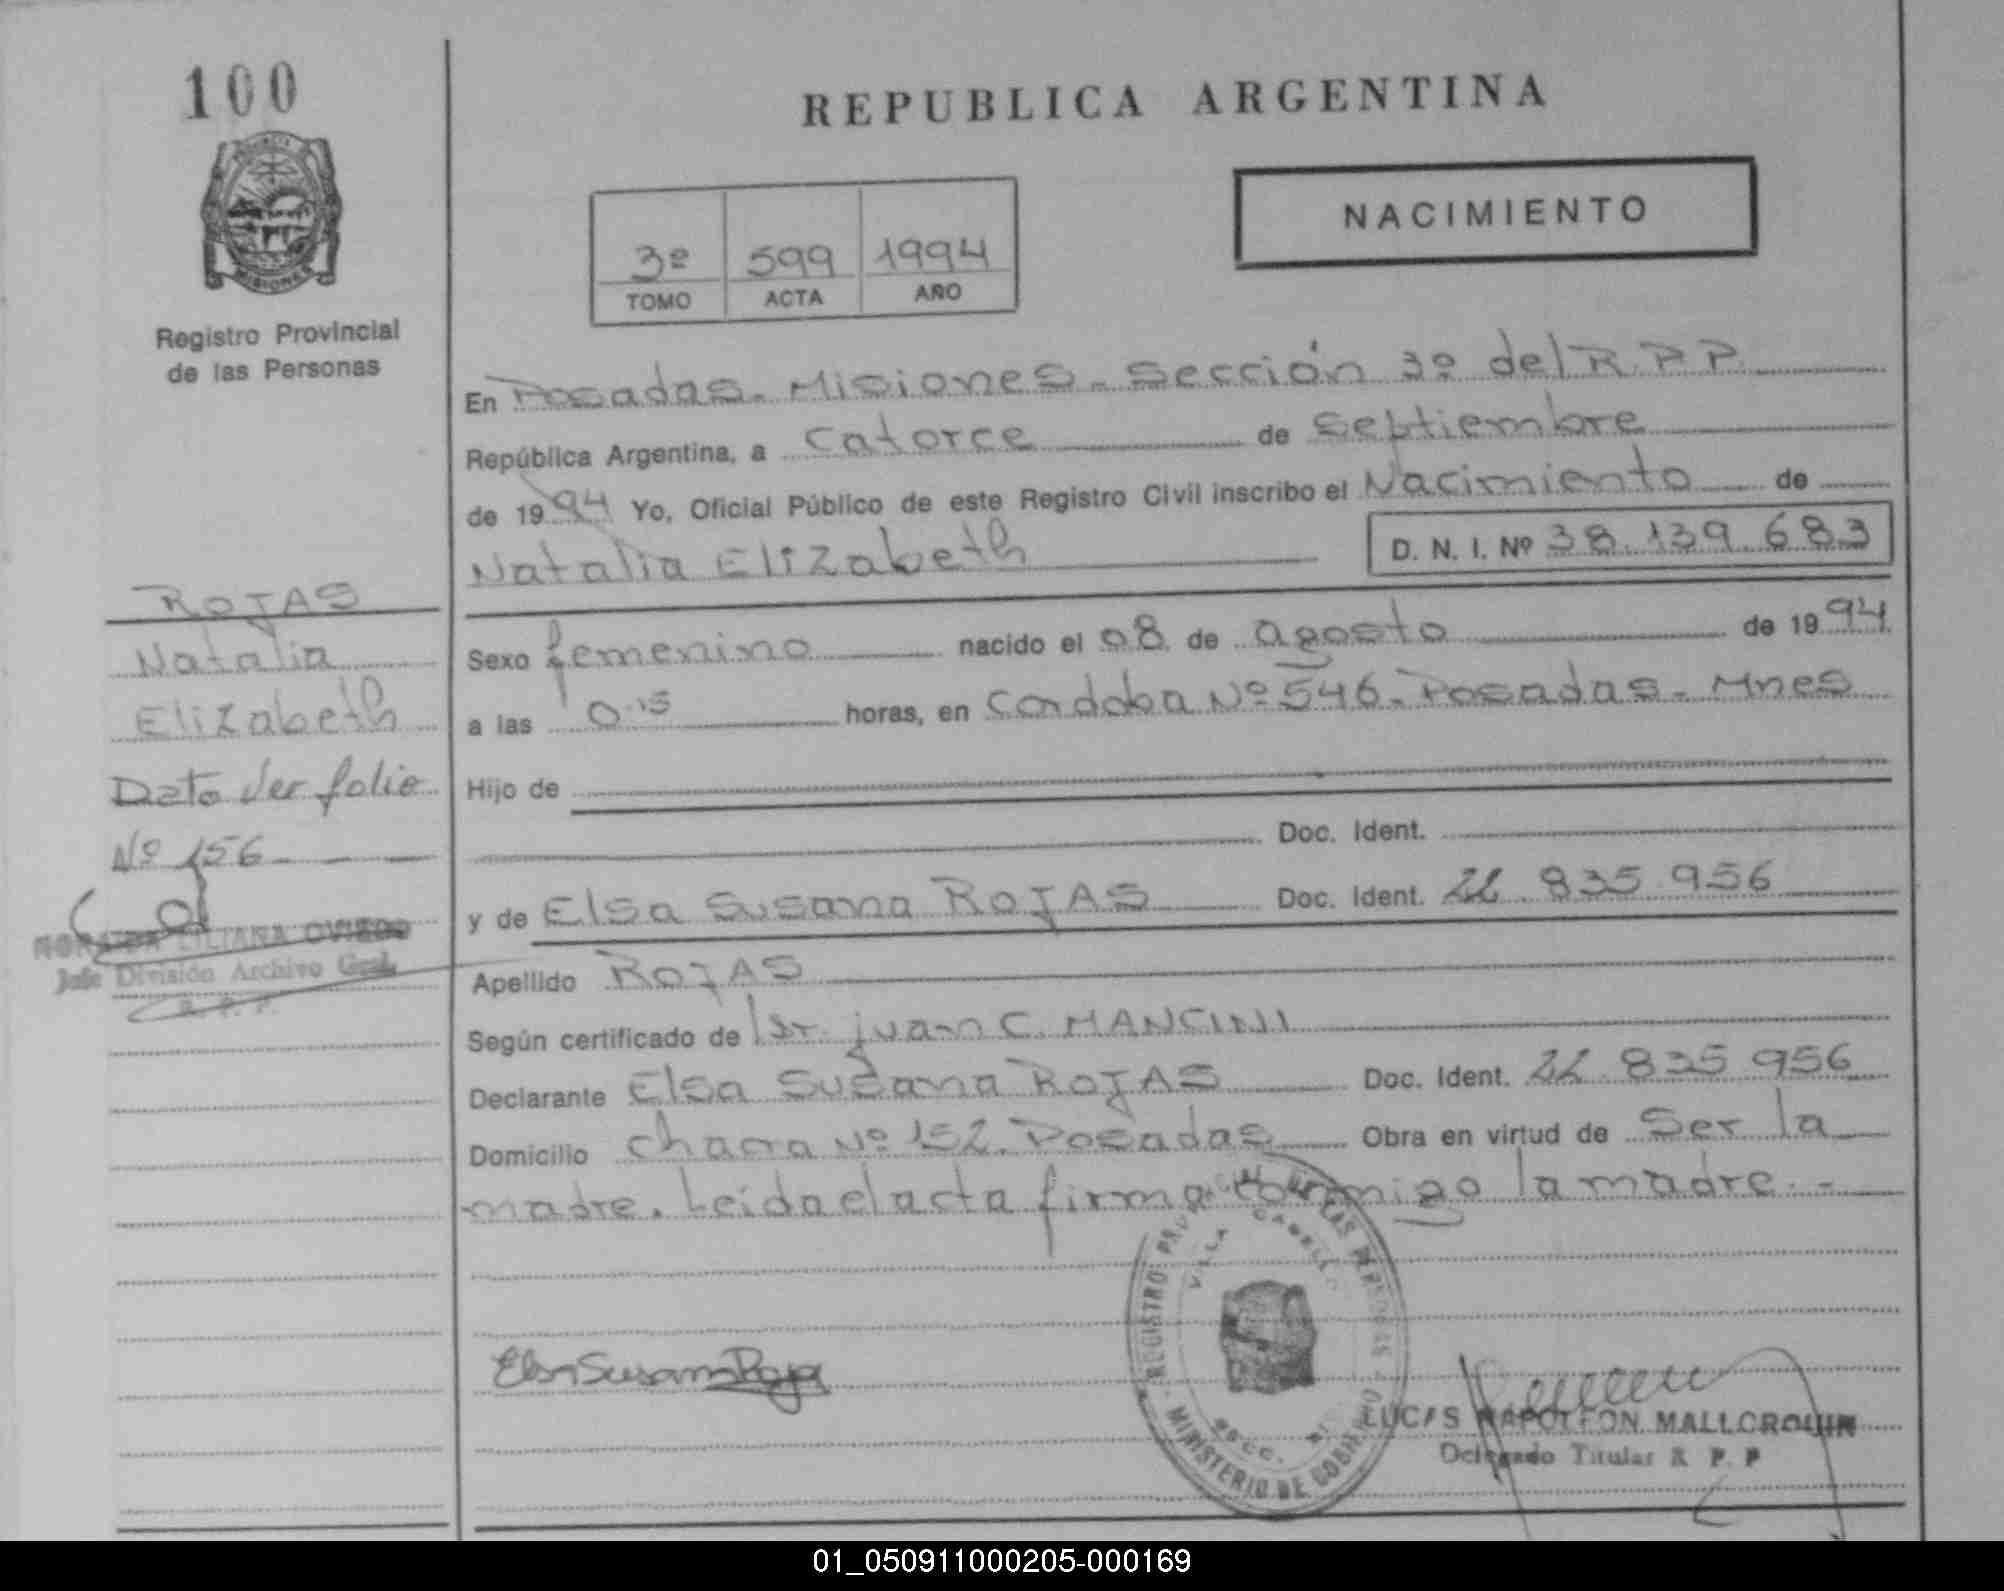 100
REPUBLICA ARGENTINA
NACIMIENTO
3º 599 1994
TOMO ACTA AÑO
PROVINCIA DE
MISIONES
Registro Provincial
de las Personas
En Posadas - Misiones - Sección 3º del R.P.P.
República Argentina, a catorce de septiembre
de 1994 Yo, Oficial Público de este Registro Civil inscribo el Nacimiento de
Natalia Elizabeth D. N. I. Nº 38.139.683
ROJAS
Natalia
Elizabeth
Dato ver folio
Nº 156
LILIANA OVIEDO
Jefe División Archivo Gral.
R. P. P.
Sexo femenino nacido el 08 de agosto de 1994
a las 0.15 horas, en Cordoba Nº 546 - Posadas - Mnes
Hijo de
Doc. Ident.
y de Elsa Susana ROJAS Doc. Ident. 22 835 956
Apellido ROJAS
Según certificado de juan C. MANCINI
Declarante Elsa Susana ROJAS Doc. Ident. 22 835 956
Domicilio chacra Nº 152. Posadas Obra en virtud de Ser la
madre. Leída el acta firma conmigo la madre. -
REGISTRO PROVINCIAL DE LAS PERSONAS
VILLA CABELLO
SECC.
MINISTERIO DE GOBIERNO
Elsa Susana Rojas
LUCAS NAPOLEON MALLORQUIN
Delegado Titular R. P. P
01_050911000205-000169